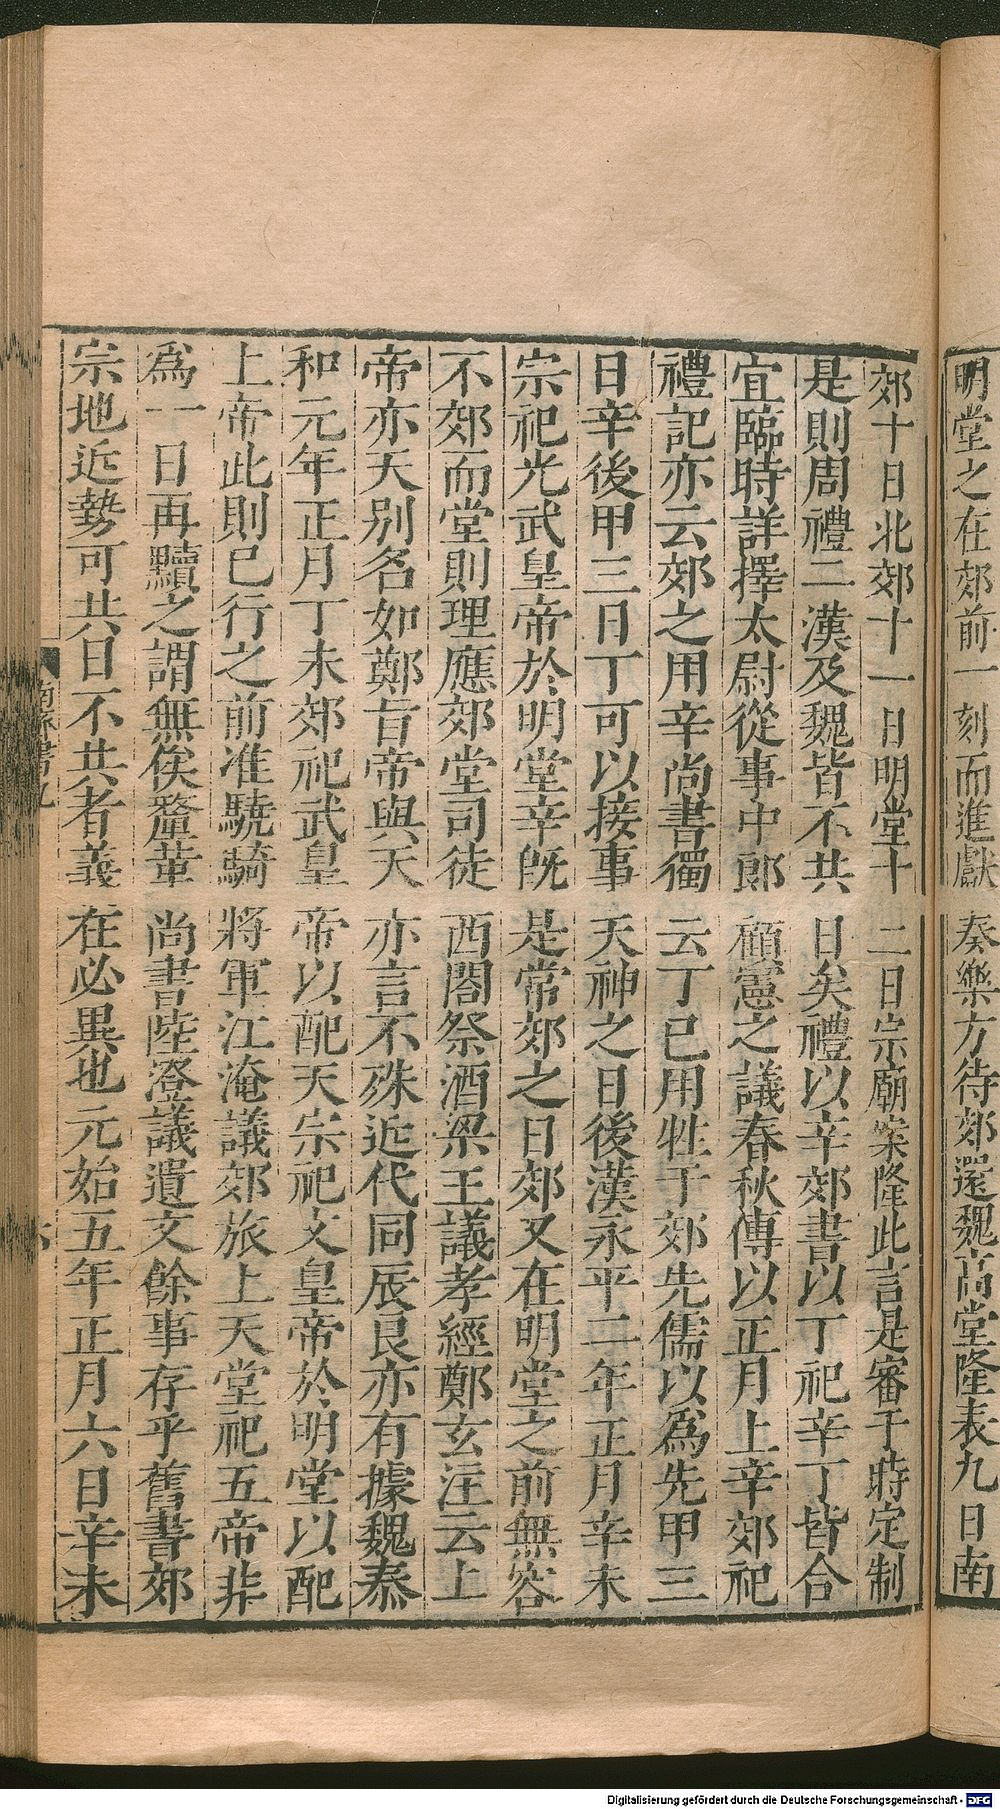 明堂之在郊前一刻而進獻奏樂方待郊還魏高堂隆表九日南
郊十日北郊十一日明堂十二日宗廟案隆此言是審于時定制
是則周禮二漢及魏皆不共日矣禮以辛郊書以丁祀辛丁皆合
宜臨時詳擇太尉從事中郎顧憲之議春秋傳以正月上辛郊祀
禮記亦云郊之用辛尚書獨云丁巳用牲于郊先儒以為先甲三
日辛後甲三日丁可以接事天神之日後漢永平二年正月辛未
宗祀光武皇帝於明堂辛既是常郊之日郊又在明堂之前無容
不郊而堂則理應郊堂司徒西閤祭酒梁王議孝經鄭玄注云上
帝亦天別名如鄭旨帝與天亦言不殊近代同辰良亦有據魏泰
和元年正月丁未郊祀武皇帝以配天宗祀文皇帝於明堂以配
上帝此則已行之前准驍騎將軍江淹議郊旅上天堂祀五帝非
為一日再黷之謂無俟釐革尚書陸澄議遺文餘事存乎舊書郊
宗地近勢可共日不共者義在必異也元始五年正月六日辛未
南齊書九
六
Digitalisierung gefördert durch die Deutsche Forschungsgemeinschaft - DFG